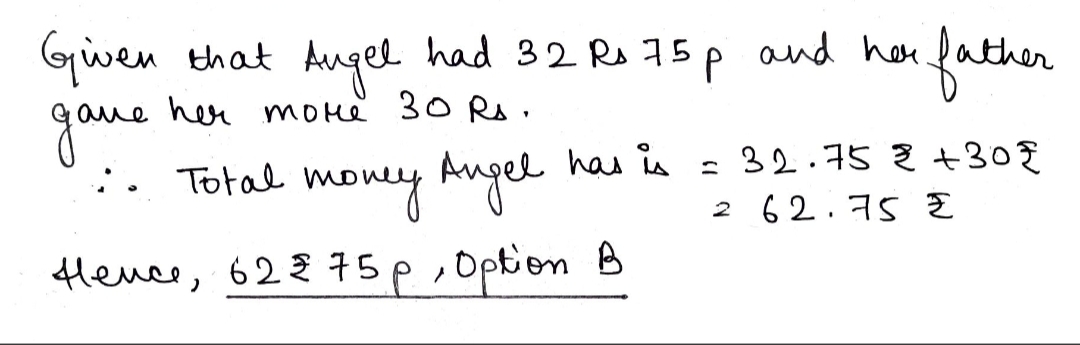 Given that Angel had 32 Rs 75 p and her father
gave her more 30 Rs.
∴ Total money Angel has is = 32.75 ₹ + 30 ₹
= 62.75 ₹
Hence, 62 ₹ 75 p, Option B